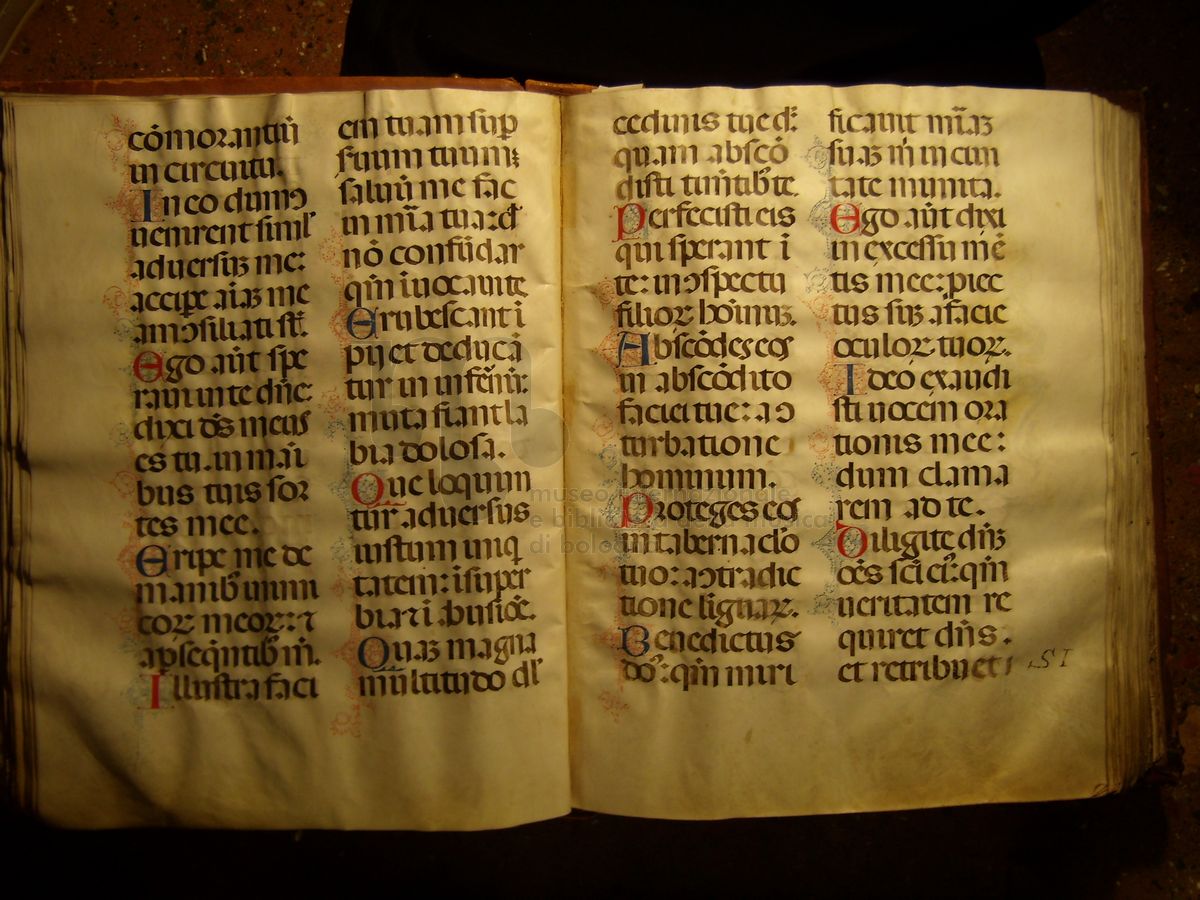 cōmorantiū
in circuitu.
In eo dum ↄ
uenirent siml'
aduersuʒ me:
accipe aīaʒ me
am ↄsiliati st̄.
Ego aūt spe
raui in te dñe:
dixi ds̄ meus
es tu. in māi
bus tuis sor
tes mee.
Eripe me de
manib' inimi
coꝝ meoꝝ: ⁊
a ꝑseqn̄tib' m̄.
Illustra faci
em tuam suꝑ
seruum tuum:
saluū me fac
in mīa tua: d
nō confūdar
qm̄ inuocaui te
Erubescant i
pij et deducā
tur in infernū:
muta fiant la
bia dolosa.
Que loquun
tur aduersus
iustum iniq
tatem: i supeꝛ
bia ⁊ i abusioē.
Quaʒ magna
multitudo dl'
cedinis tue d:
quam abscō
disti timētib' te.
Perfecisti eis
qui sperant i
te: in ↄspectu
filioꝝ hoīnuʒ.
Abscōdes eos
in abscōdito
faciei tue: a ↄ
turbatione
hominum.
Proteges eos
in tabernaclo
tuo: a ↄtradic
tione linguaꝝ.
Benedictus
do': qm̄ miri
ficauit mīaʒ
suaʒ m̄ in ciui
tate munita.
Ego aūt dixi
in excessu mē
tis mee: piec
tus suʒ a facie
oculoꝝ tuoꝝ.
Ideo exaudi
sti uocem ora
tionis mee:
dum clama
rem ad te.
Diligite dn̄ʒ
oēs sci ei': qm̄
ueritatem re
quiret dn̄s.
et retribuet i
museo internazionale
e biblioteca della musica
di bologna